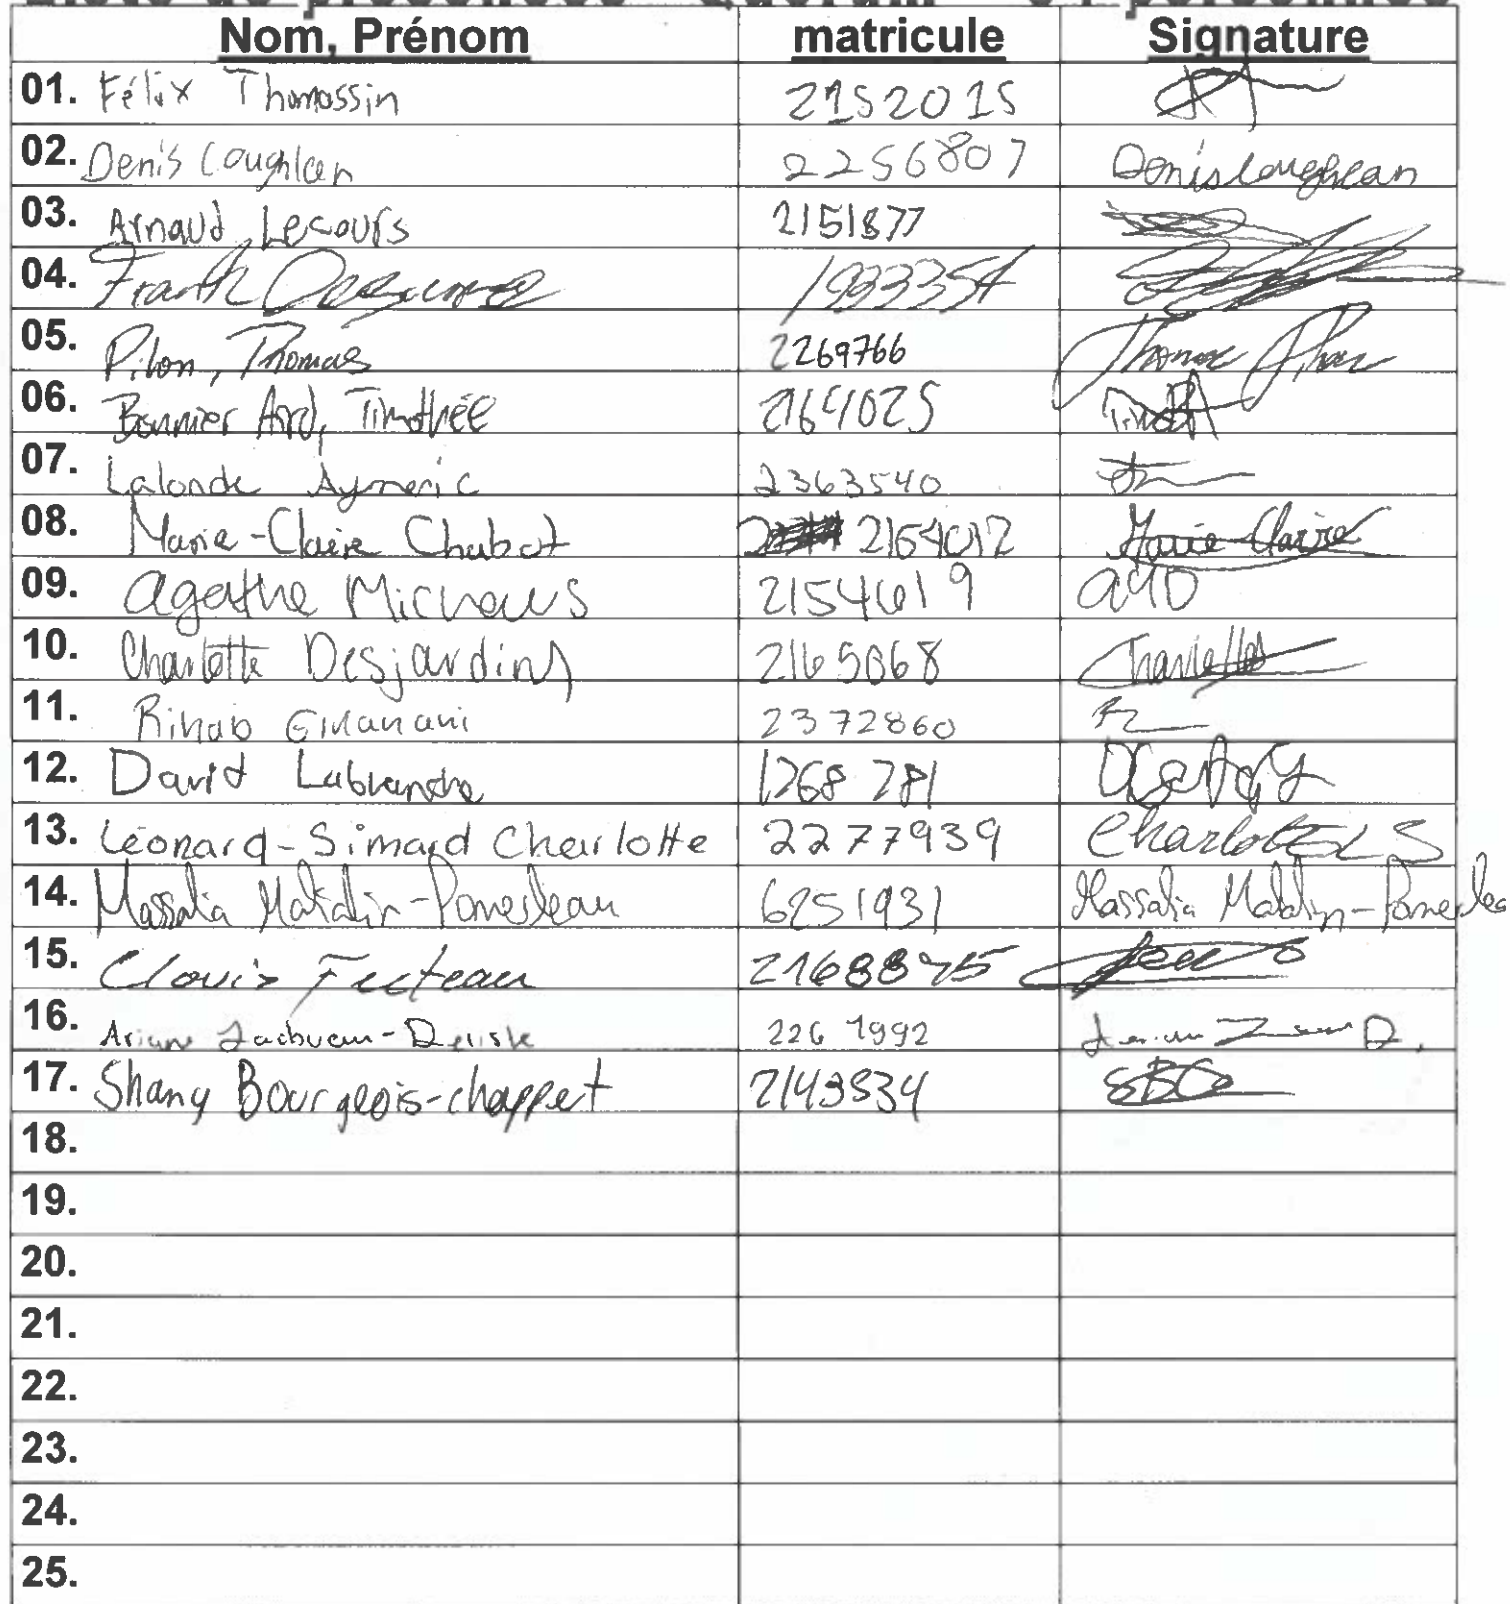 Nom, Prénom matricule Signature
01. Félix Thomassin 2152015
02. Denis Coughlan 2256807 Denis Coughlan
03. Arnaud Lecours 2151877
04. Frank 193335
05. Pilon, Thomas 2269766 Thomas Pilon
06. Bonnier Ard, Timothée 2164025
07. Lalonde Aymeric 2363540
08. Marie-Claire Chabot 2164012 Marie-Claire
09. Agathe 2154619
10. Charlotte Desjardins 2165068 Charlotte
11. Rihab 2372860
12. David Labranche 1268 781
13. Léonard-Simard Charlotte 2277939 Charlotte L S
14. Massalia Matalin-Pomerleau 6251931 Massalia Matalin-Pomerleau
15. Clovis Fecteau 2168845
16. Ariane 226 1992
17. Shany Bourgeois-chappert 2143834 SBC
18.
19.
20.
21.
22.
23.
24.
25.